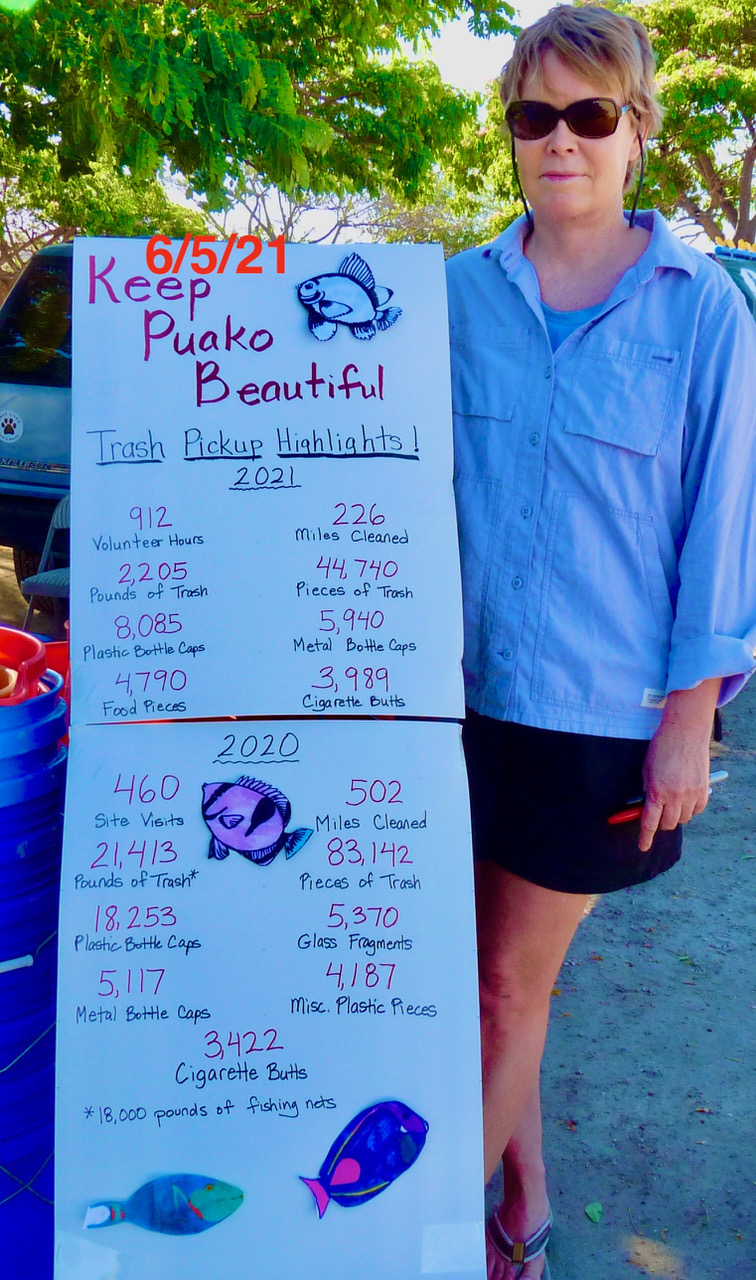 6/5/21
Keep
Puako
Beautiful
Trash Pickup Highlights!
2021
912 226
Volunteer Hours Miles Cleaned
2,205 44,740
Pounds of Trash Pieces of Trash
8,085 5,940
Plastic Bottle Caps Metal Bottle Caps
4,790 3,989
Food Pieces Cigarette Butts
2020
460 502
Site Visits Miles Cleaned
21,413 83,142
Pounds of Trash* Pieces of Trash
18,253 5,370
Plastic Bottle Caps Glass Fragments
5,117 4,187
Metal Bottle Caps Misc. Plastic Pieces
3,422
Cigarette Butts
*18,000 pounds of fishing nets